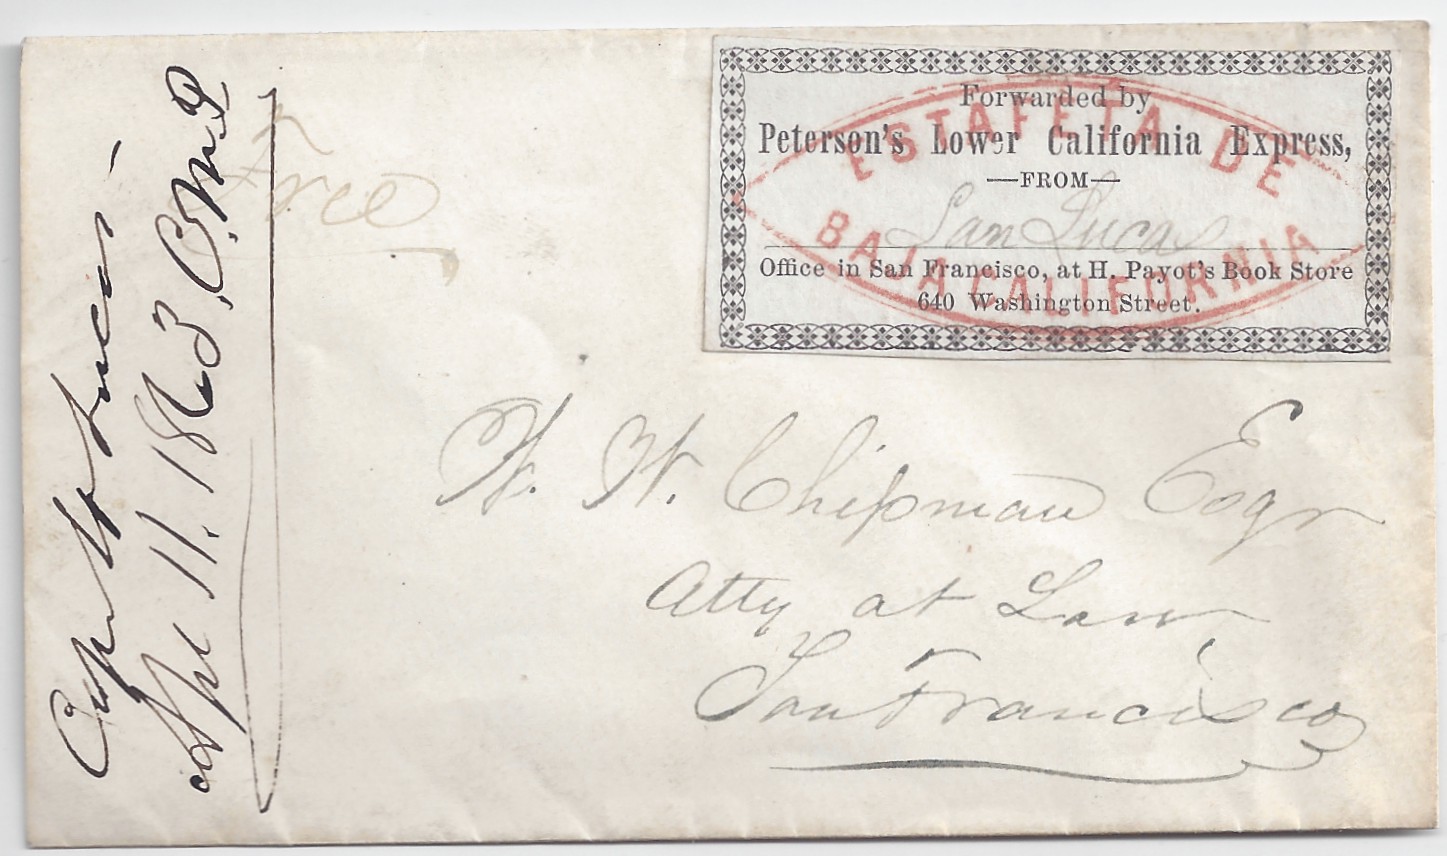 Forwarded by
Peterson's Lower California Express,
—FROM—
San Lucas
Office in San Francisco, at H. Payot's Book Store
640 Washington Street.
ESTAFETA DE
BAJA CALIFORNIA
Free
W. W. Chipman Esqr
Atty at Law
San Francisco
Cape St Lucas -
Apl 11. 1863.